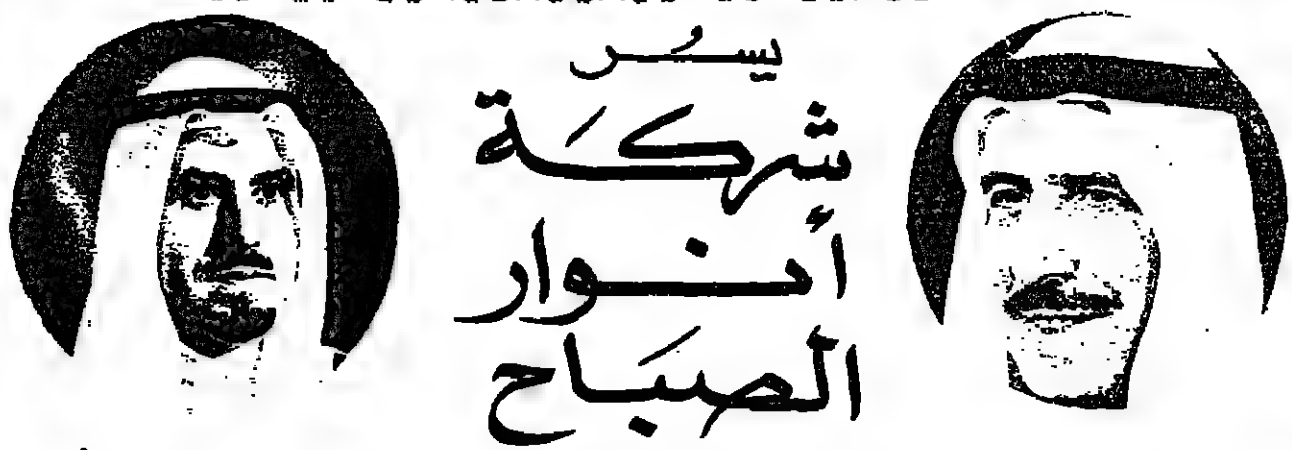 يسُر
شركَة
أنوار
الصبَاح